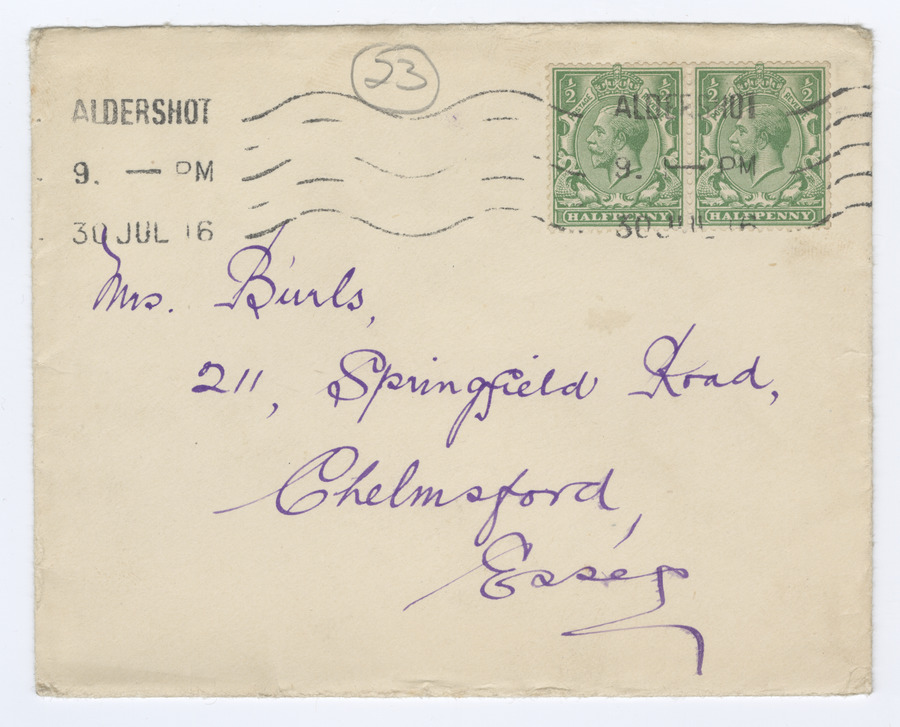 23
ALDERSHOT
9. — PM
30 JUL 16
½ ½ ½ ½
ALDERSHOT
9. — PM
HALFPENNY HALFPENNY
30 JUL 16
Mrs. Burls,
211, Springfield Road,
Chelmsford,
Essex